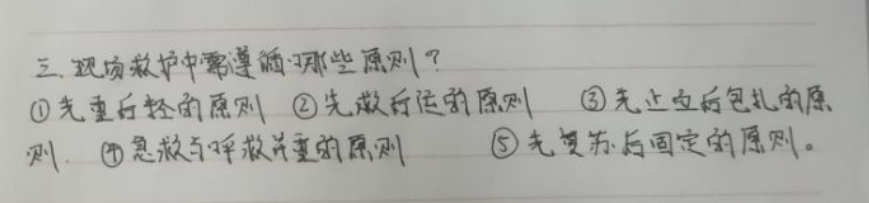 三、现场救护中需遵循哪些原则？
①先重后轻的原则 ②先救后运的原则 ③先止血后包扎的原
则. ④急救与呼救并重的原则 ⑤先复苏后固定的原则。